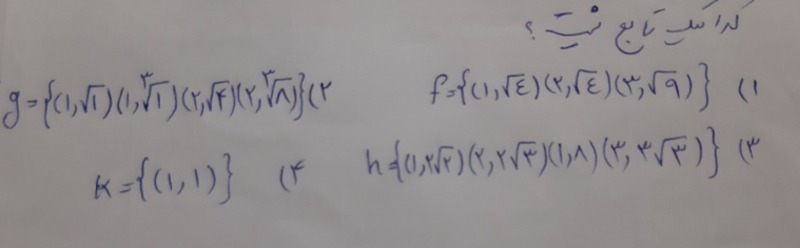 کدامیک تابع نیست؟
۱) f={(۱,√٤)(۲,√٤)(۳,√۹)}
۲) g={(۱,√۱)(۱,³√۱)(۲,√۴)(۲,³√۸)}
۳) h={(۱,۲√۲)(۲,۲√۳)(۱,۸)(۳,۳√۳)}
۴) K={(۱,۱)}